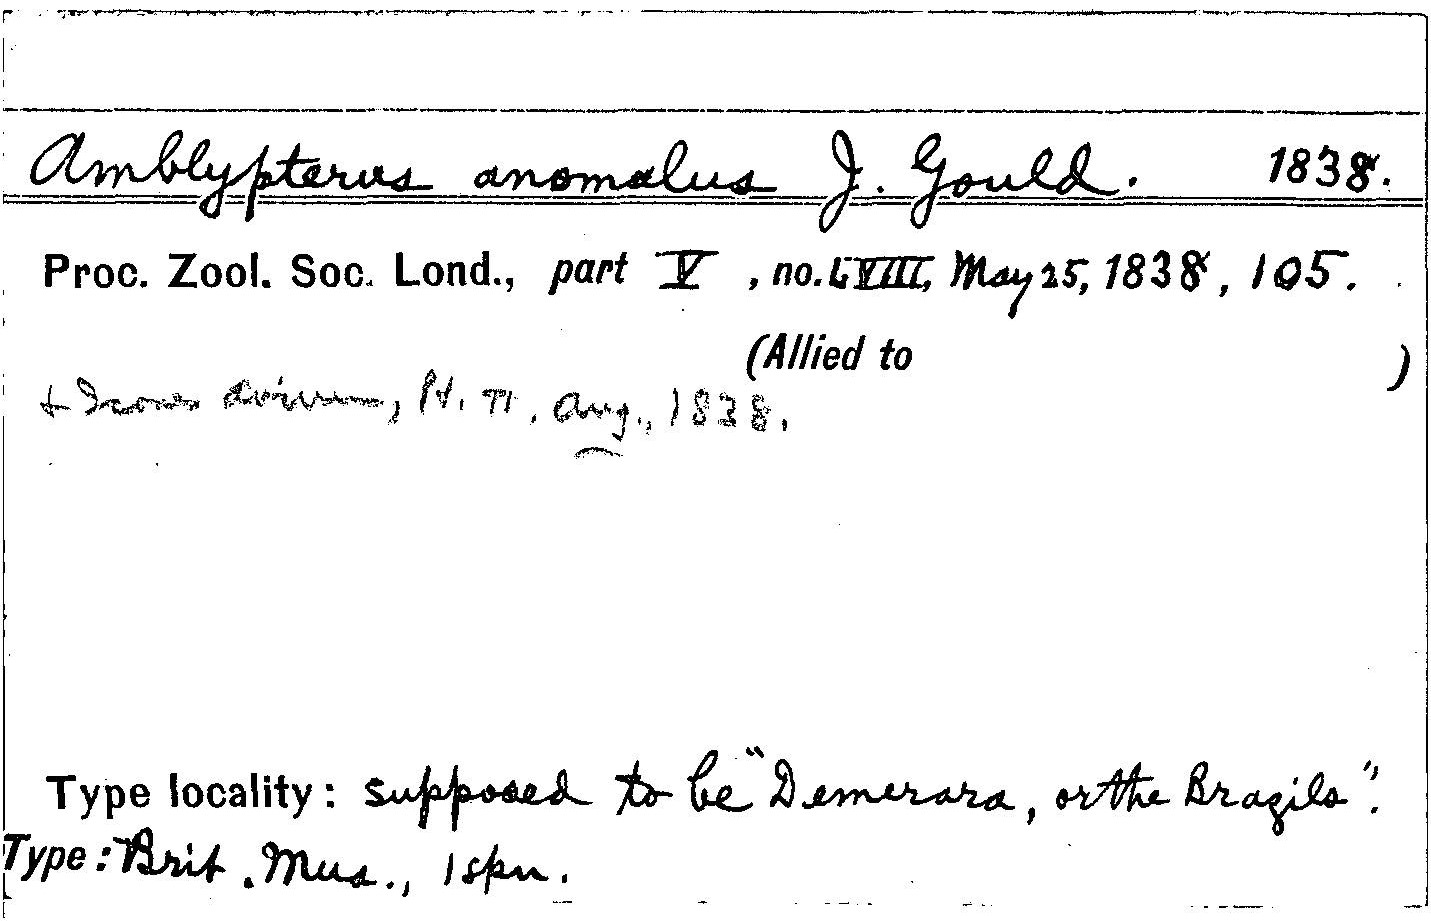 Amblypterus anomalus J. Gould. 1838.
Proc. Zool. Soc. Lond., part V, no. LVIII, May 25, 1838, 105.
(Allied to )
+ Icones avium, Pt. II. Aug., 1838.
Type locality: supposed to be "Demerara, or the Brazils".
Type: Brit. Mus., 1 spn.